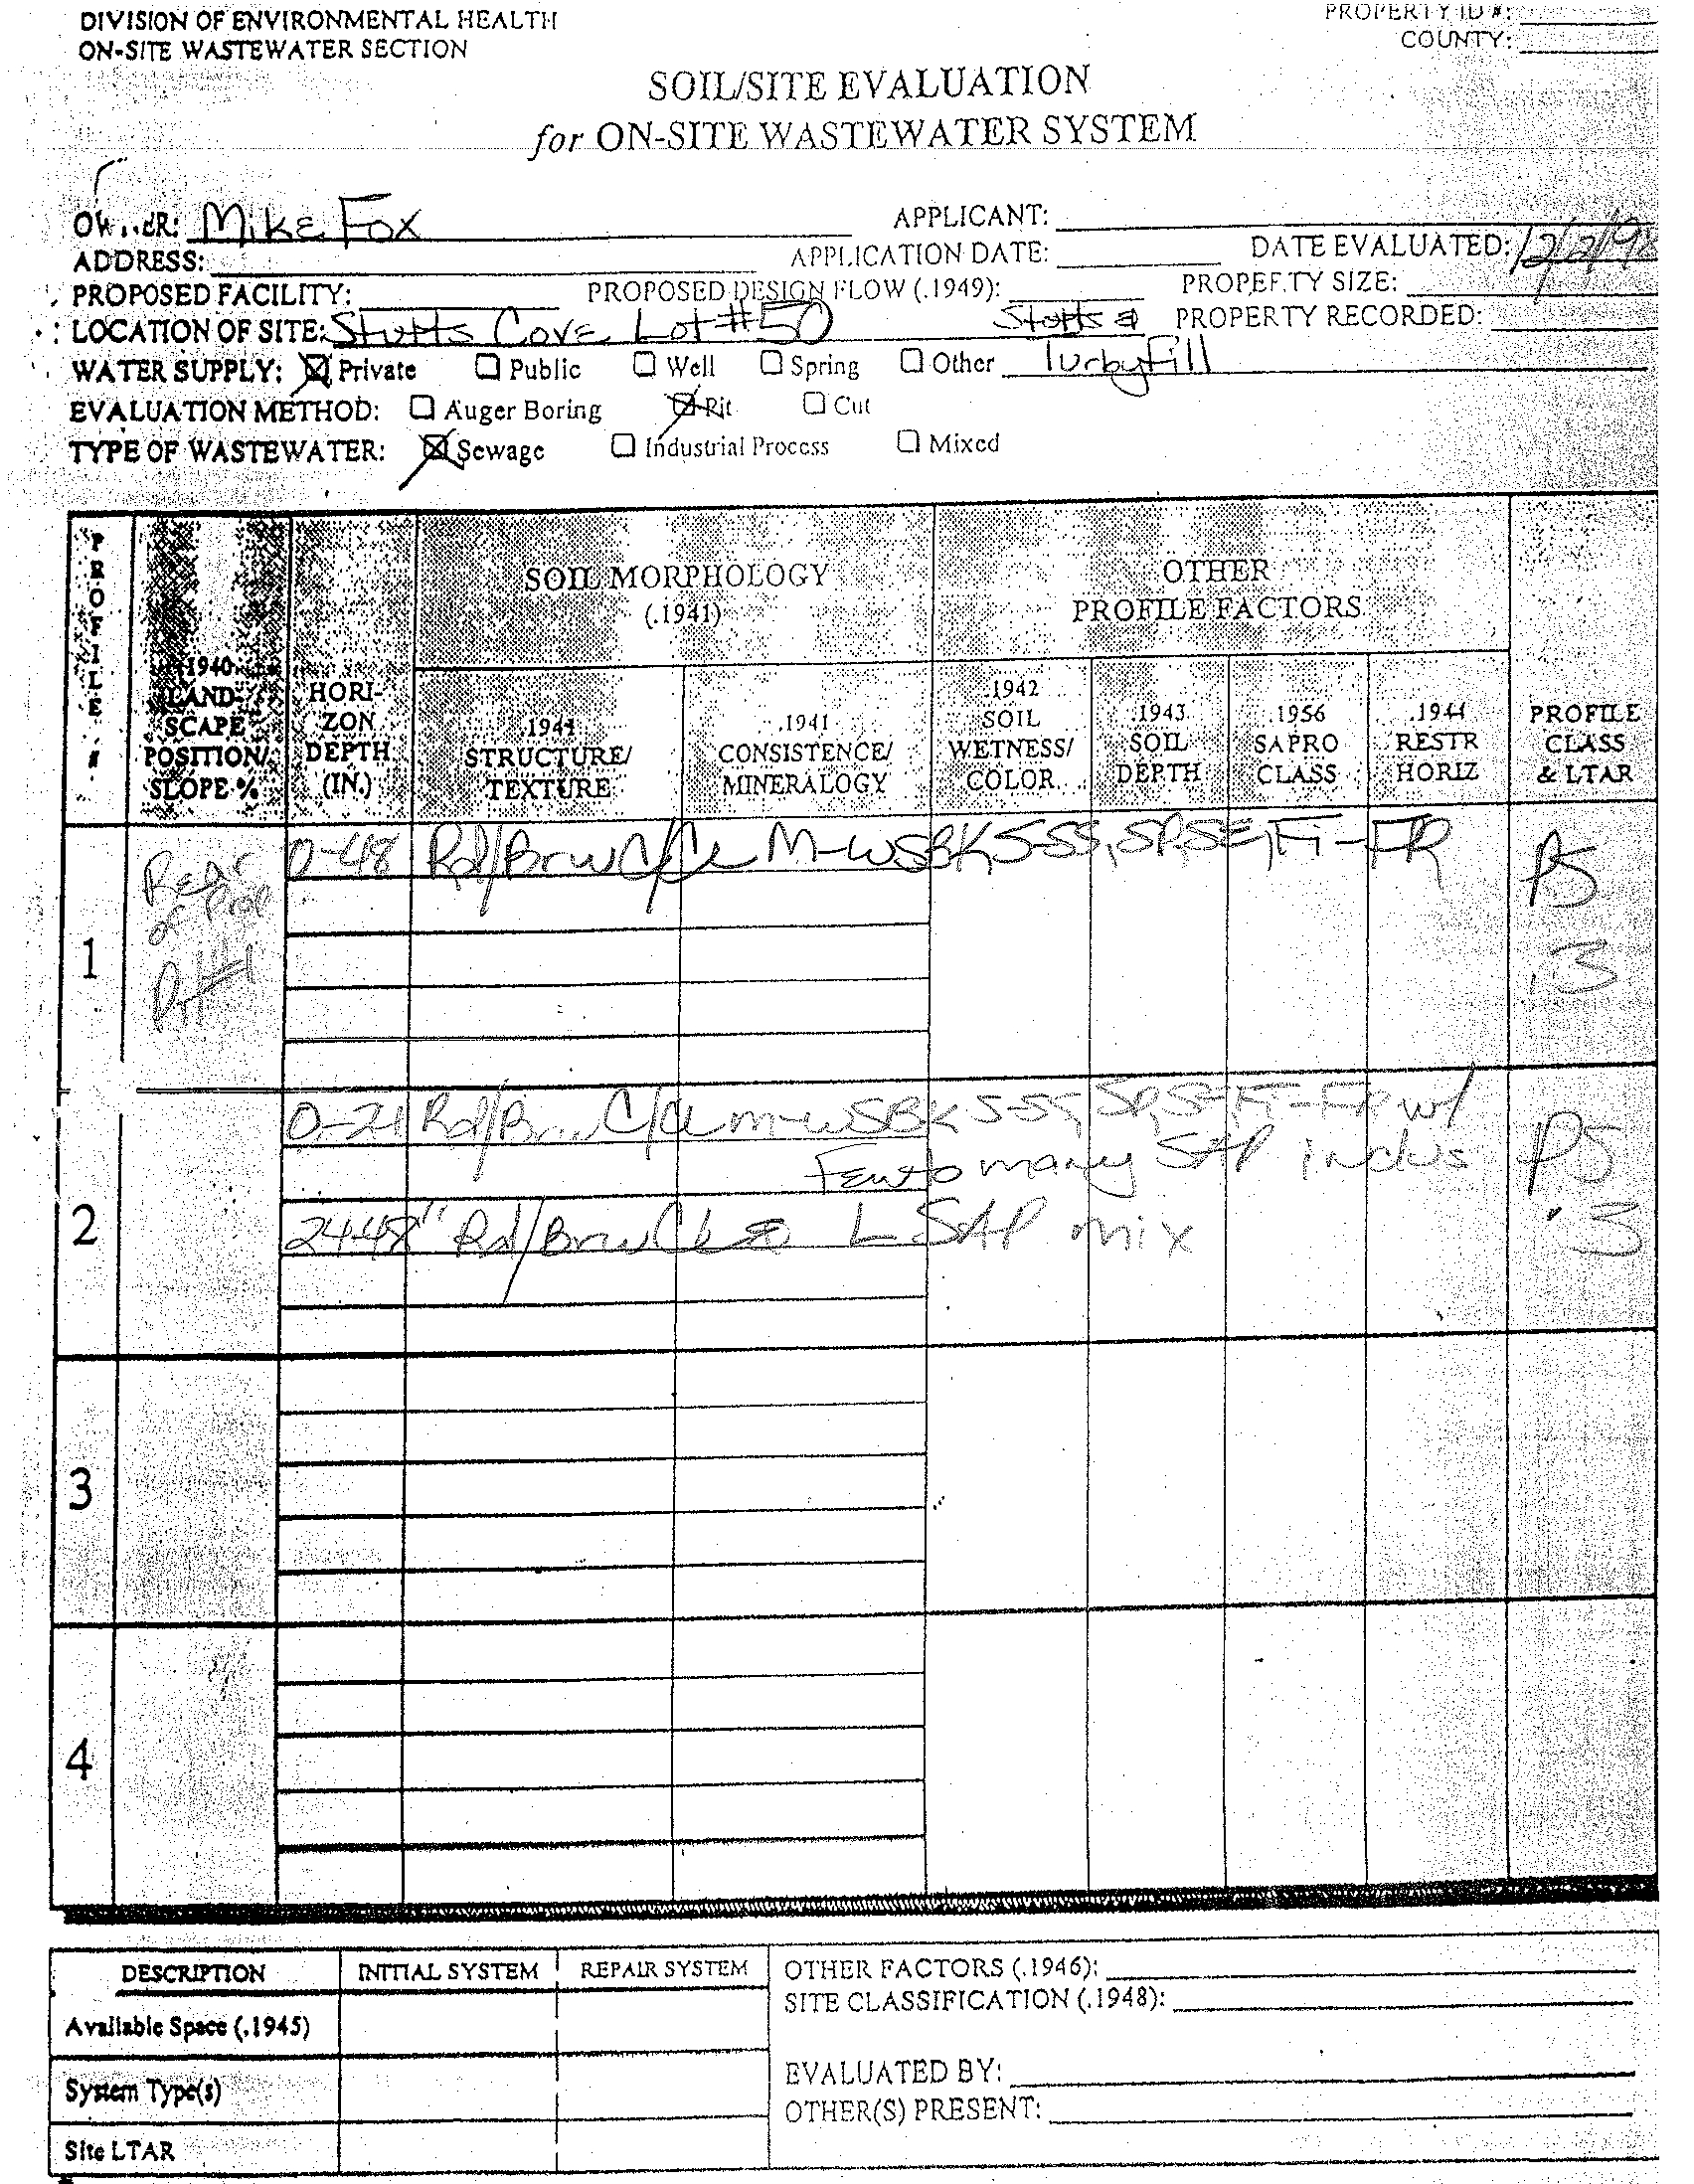 DIVISION OF ENVIRONMENTAL HEALTH
ON-SITE WASTEWATER SECTION
PROPERTY ID #:
COUNTY:
SOIL/SITE EVALUATION
for ON-SITE WASTEWATER SYSTEM
OWNER: Mike Fox
APPLICANT:
ADDRESS:
APPLICATION DATE:
DATE EVALUATED: 12/2/98
PROPOSED FACILITY:
PROPOSED DESIGN FLOW (.1949):
PROPERTY SIZE:
LOCATION OF SITE: Stutts Cove Lot #50
Stutts &
PROPERTY RECORDED:
WATER SUPPLY: Private Public Well Spring Other Turbyfill
EVALUATION METHOD: Auger Boring Pit Cut
TYPE OF WASTEWATER: Sewage Industrial Process Mixed
PROFILE #
.1940 LAND-SCAPE POSITION/ SLOPE %
HORI-ZON DEPTH (IN.)
SOIL MORPHOLOGY
(.1941)
OTHER
PROFILE FACTORS
.1941 STRUCTURE/ TEXTURE
.1941 CONSISTENCE/ MINERALOGY
.1942 SOIL WETNESS/ COLOR
.1943 SOIL DEPTH
.1956 SAPRO CLASS
.1944 RESTR HORIZ
PROFILE CLASS & LTAR
1
Rear of Prop
Pit #1
0-48 Rd/Brw C/CL M-WSBK, S-SS, SP, SE, Fi-FR
PS
.3
2
0-24 Rd/Brw C/CL M-WSBK S-SS, SP, SE, Fi-FR w/
Few to many SAP inclus
24-48" Rd/Brw CL L SAP mix
PS
.3
3
4
DESCRIPTION
INITIAL SYSTEM
REPAIR SYSTEM
Available Space (.1945)
System Type(s)
Site LTAR
OTHER FACTORS (.1946):
SITE CLASSIFICATION (.1948):
EVALUATED BY:
OTHER(S) PRESENT: